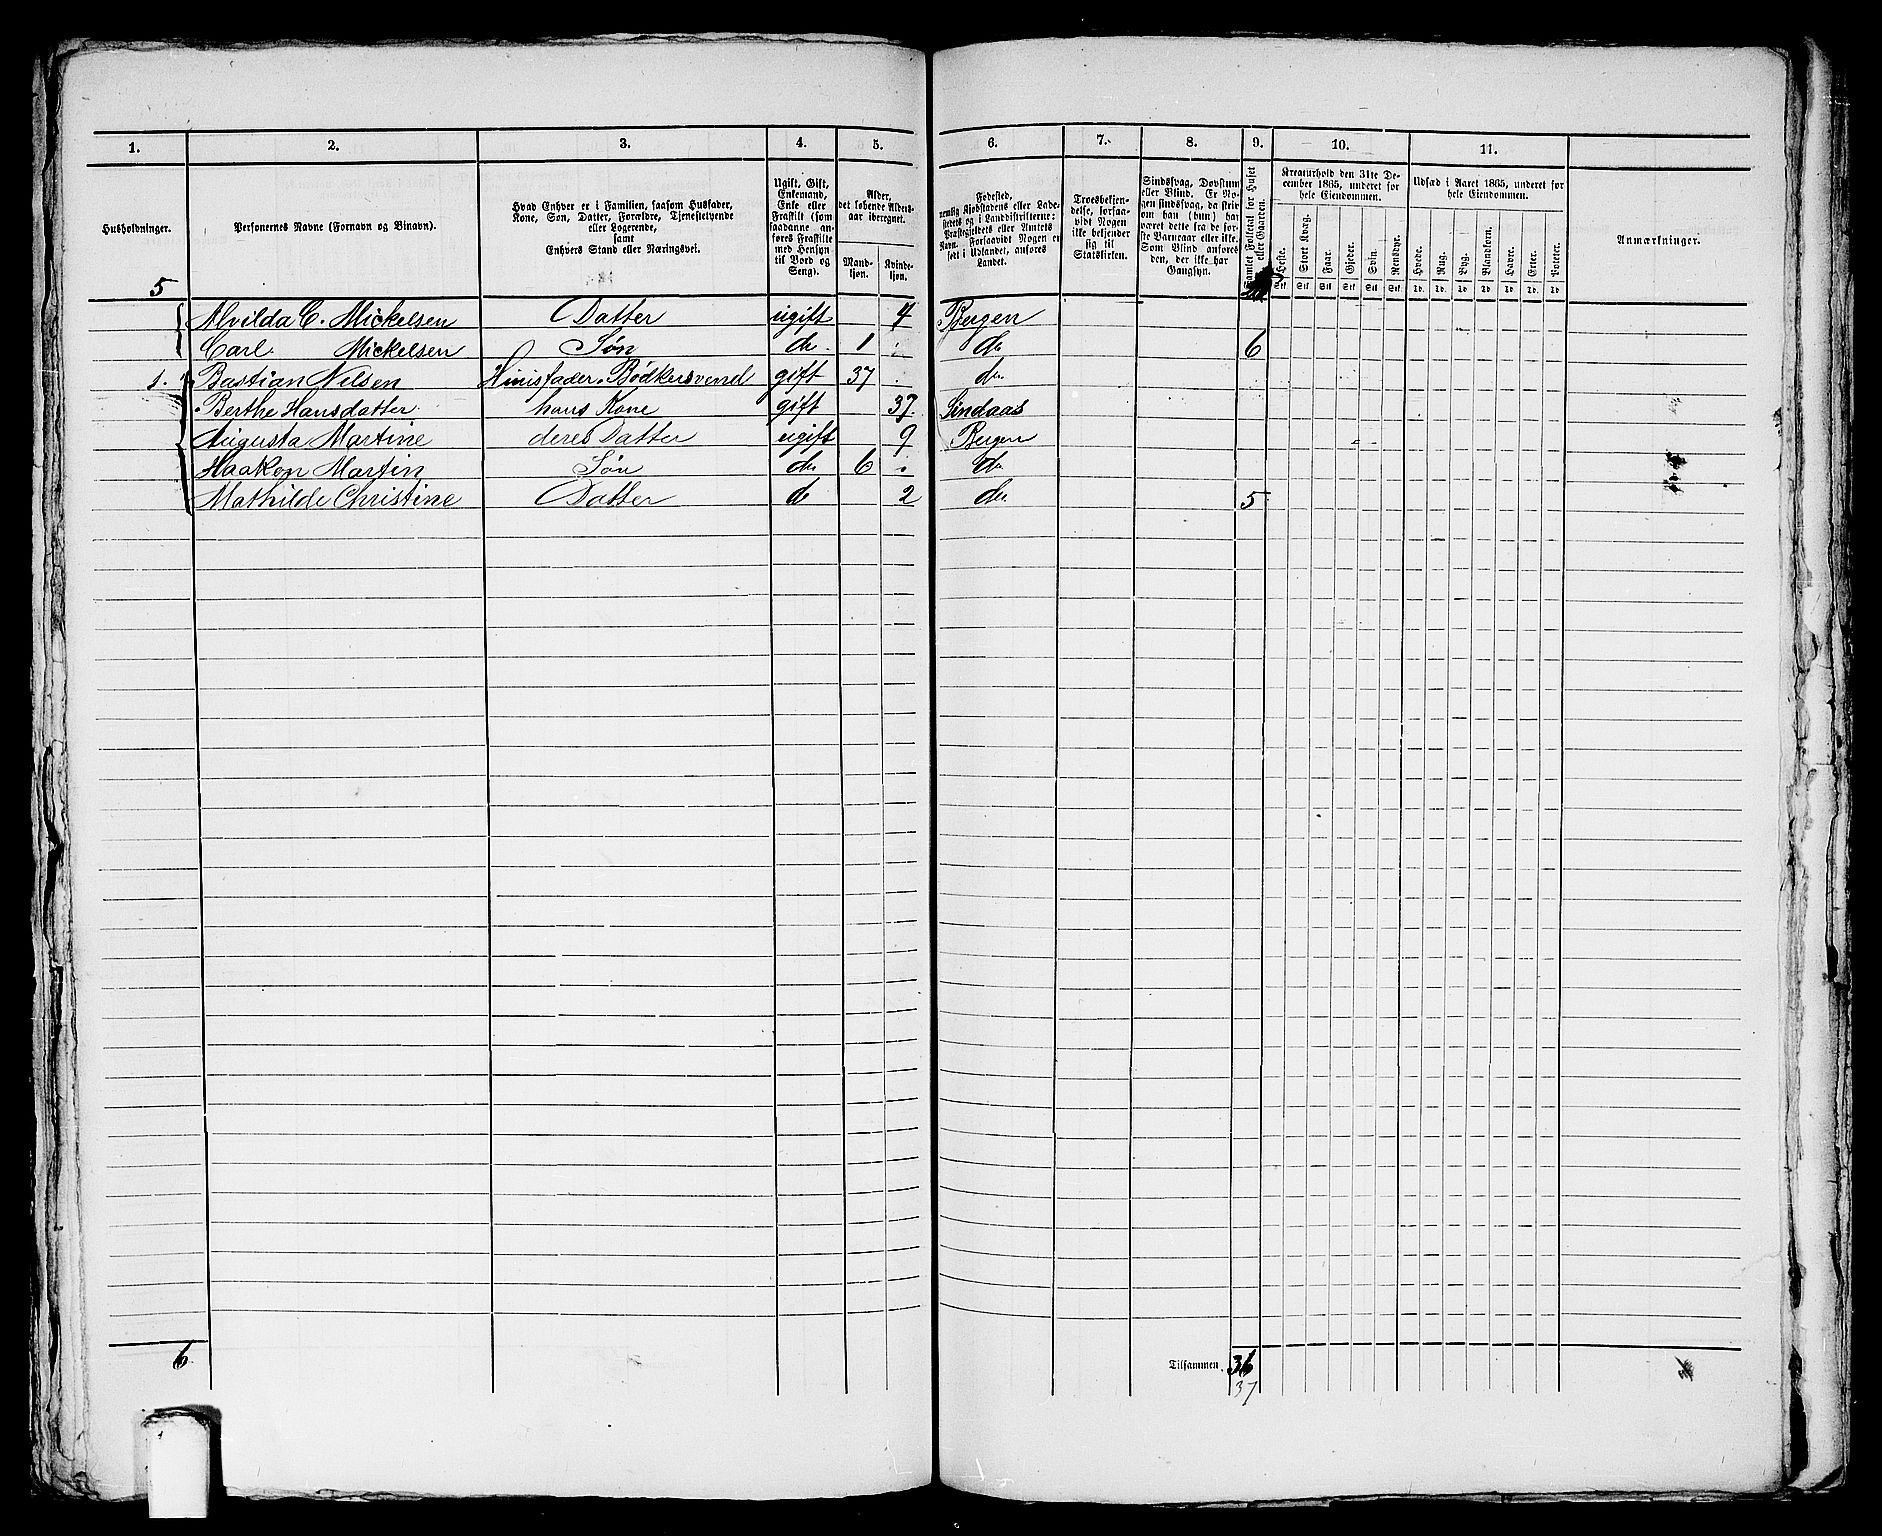 1. 2. 3. 4. 5. 6. 7. 8. 9. 10. 11.
Husholdninger.
Personernes Navne (Fornavn og Binavn).
Hvad Enhver er i Familien, saasom Husfader,
Kone, Søn, Datter, Forældre, Tjenestetyende
eller Logerende,
samt
Enhvers Stand eller Næringsvei.
Ugift, Gift,
Enkemand,
Enke eller
Fraskilt (som
saadanne an-
føres Fraskilte
med Hensyn
til Bord og
Seng).
Alder,
det løbende Alders-
aar iberegnet.
Mand-
kjøn.
Kvinde-
kjøn.
Fødested,
nemlig Kjøbstadens eller Lade-
stedets og i Landdistrikterne:
Præstegjeldets eller Amtets
Navn. Forsaavidt Nogen er
født i Udlandet, anføres
Landet.
Troesbekjen-
delse, forsaa-
vidt Nogen
ikke bekjender
sig til
Statskirken.
Sindssvag, Døvstum
eller Blind. Er No-
gen sindssvag, da skriv
om han (hun) har
været dette fra de før-
ste Barneaar eller ikke.
Som Blind anføres
den, der ikke har
Gangsyn.
Samlet Folketal for Huset
eller Gaarden.
Kreaturhold den 31te De-
cember 1865, underet for
hele Eiendommen.
Heste. Stort Kvæg. Faar. Gjeder. Svin. Rensdyr.
Stk Stk Stk Stk Stk Stk
Udsæd i Aaret 1865, underet for
hele Eiendommen.
Hvede. Rug. Byg. Blandkorn. Havre. Erter. Poteter.
Td. Td. Td Td Td. Td. Td
Anmærkninger.
5
Alvilda C. Mickelsen Datter ugift 4 Bergen
Carl Mickelsen Søn do 1 do 6
1. Bastian Nilsen Huusfader. Bødkersvend gift 37 do
Berthe Hansdatter hans Kone gift 37. Lindaas
Augusta Martine deres Datter ugift 9 Bergen
Haakon Martin Søn do 6 do
Mathilde Christine Datter do 2 do 5
6 Tilsammen. 36
37